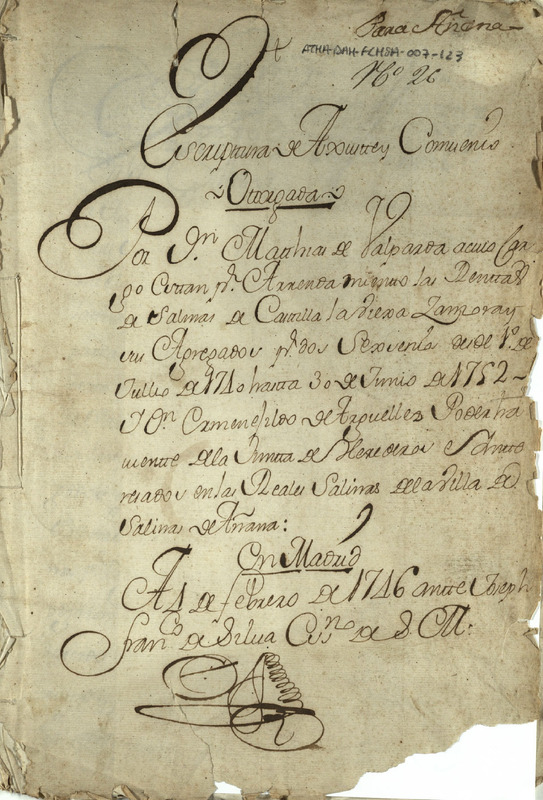 Para Añana
ATHA-DAH-FCHSA-007-123
Nº 26
Escriptura de Axuste y Comvenio
Otorgada
Por Dn Mathias de Valparda a cuio Car
go Corran pr. Arrendamiento las Renttas
de Salinas de Castilla la Viexa Zamora y
sus Agregados pr. dos Sexsenios desde 1º de
Jullio de 1740 hasta 30 de Junio de 1752
Y Dn Ermenefildo de Arguelles Poder ha
viente de la Junta de Herederos e Yntte
resados en las Reales Salinas de la Villa de
Salinas de Añana:
En Madrid
A 4 de febrero de 1746 antte Joseph
Franco de Silva Essno de S. M.